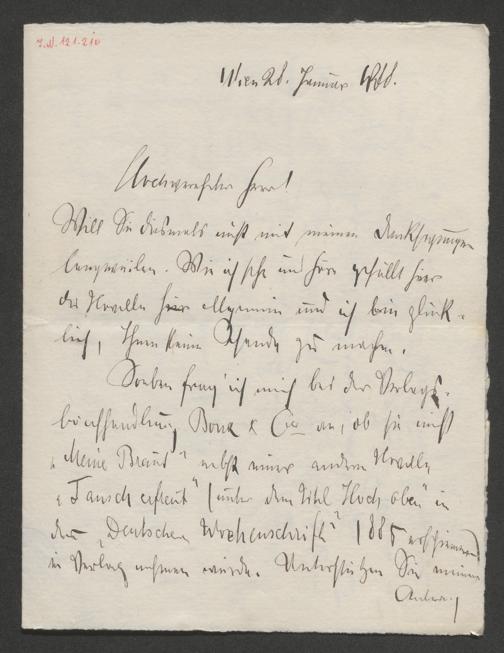 J.N. 121.210
Wien 28. Januar 188.
Hochverehrter Herr!
Will Sie diesmals nicht mit meinen Danksagungen
langweilen. Wie ich sehe und höre gefällt hier
die Novelle hier allgemein und ich bin glück-
lich, Ihnen keine Schande zu machen.
Soeben frag' ich mich bei der Verlags-
buchhandlung Bonz & Cie an, ob sie nicht
„Meine Braut" nebst einer andern Novelle
(unter dem Titel Hoch oben" in
der „Deutschen Wochenschrift" 1885 erschienen)
in Verlag nehmen würde. Unterstützen Sie meine